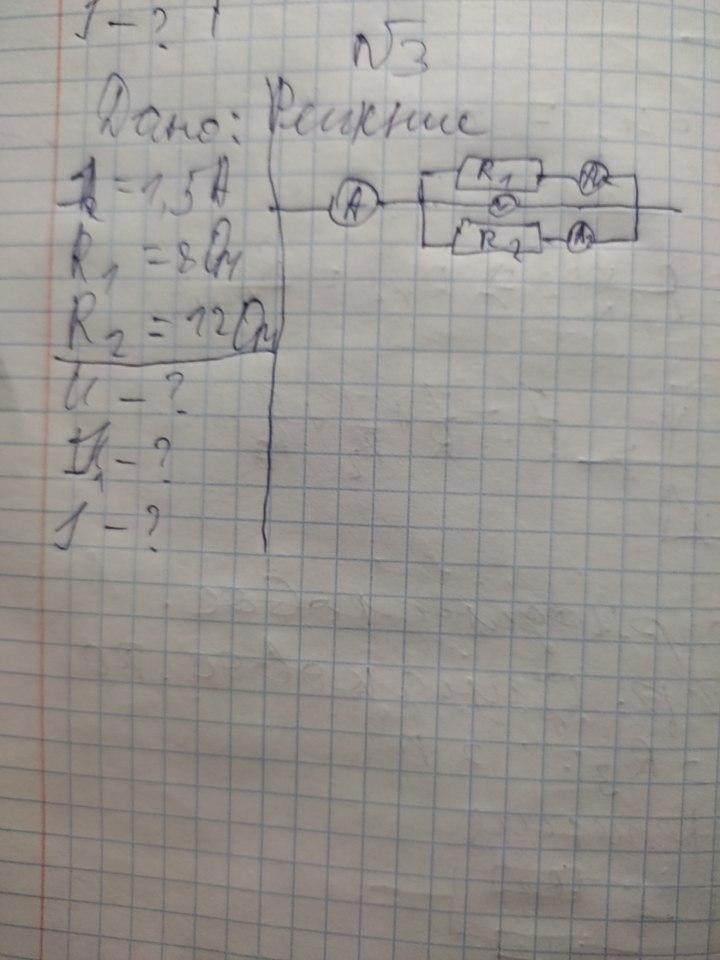 J - ?
№3
Дано: Решение
I₂ = 1,5 А
R₁ = 8 Ом
R₂ = 12 Ом
U - ?
I₁ - ?
J - ?
R₁ A₁
A V
R₂ A₂